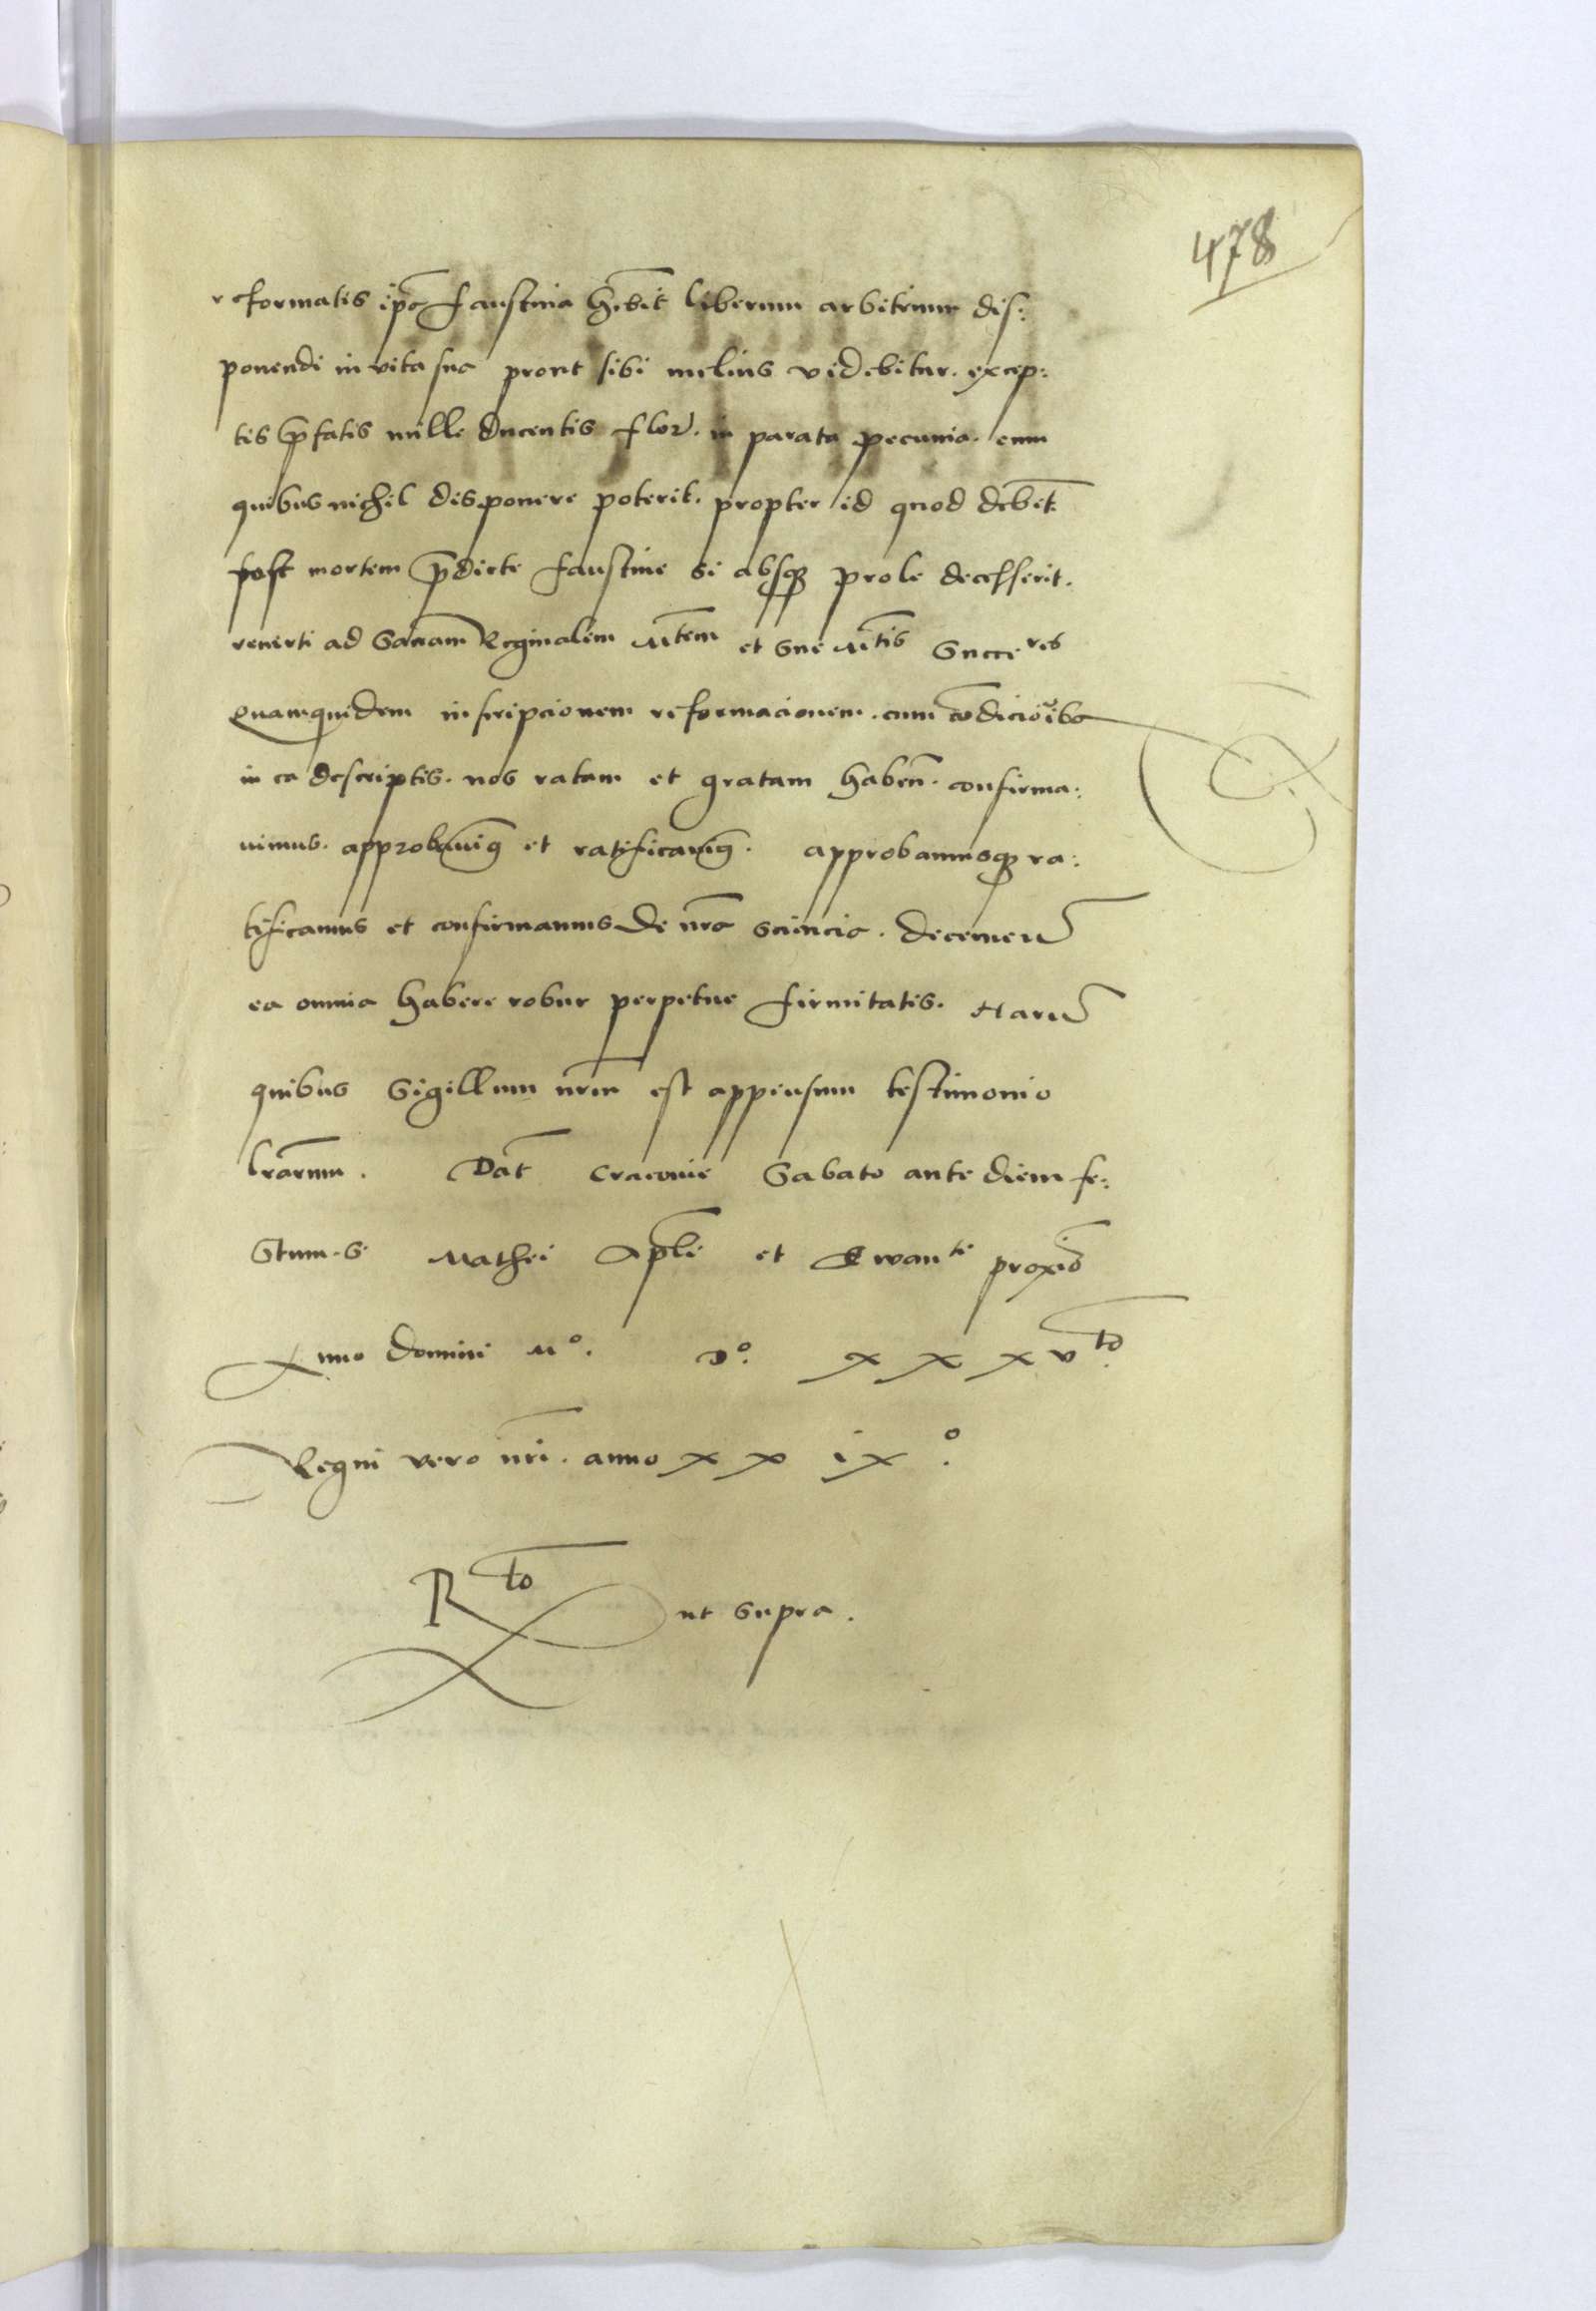 478
reformatis ip̄a faustina h̄ebit liberum arbitrium dis:
ponendi in vita sua prout sibi melius videbitur. excep:
tis p̄fatis mille ducentis flor. in parata pecunia. cum
quibus nichil disponere poterit. propter id quod debēt
post mortem p̄dicte faustine si absq̄ prole decesserit.
reuerti ad Sacram Reginalem Mtem et Sue Mtis Succeres
Quamquidem inscripcionem reformacionem. cum cōdicioībs
in ea descriptis. nos ratam et gratam habeñ. confirma:
uimus. approbauimꝰ et ratificauimꝰ. approbamusq̄ ra:
tificamus et confirmamus de nrā sciencia. decerneñ
ea omnia habere robur perpetue firmitatis. Harū
quibus Sigillum nrm̄ est appensum testimonio
lrārum. Dat̄ Cracouie Sabato ante diem fe:
Stum. S. Mathei Apl̄i et Ewante proxīo
Anno domini Mo. Do. xxxvto.
Regni vero nr̄i. anno xxixo.
Rto ut supra.